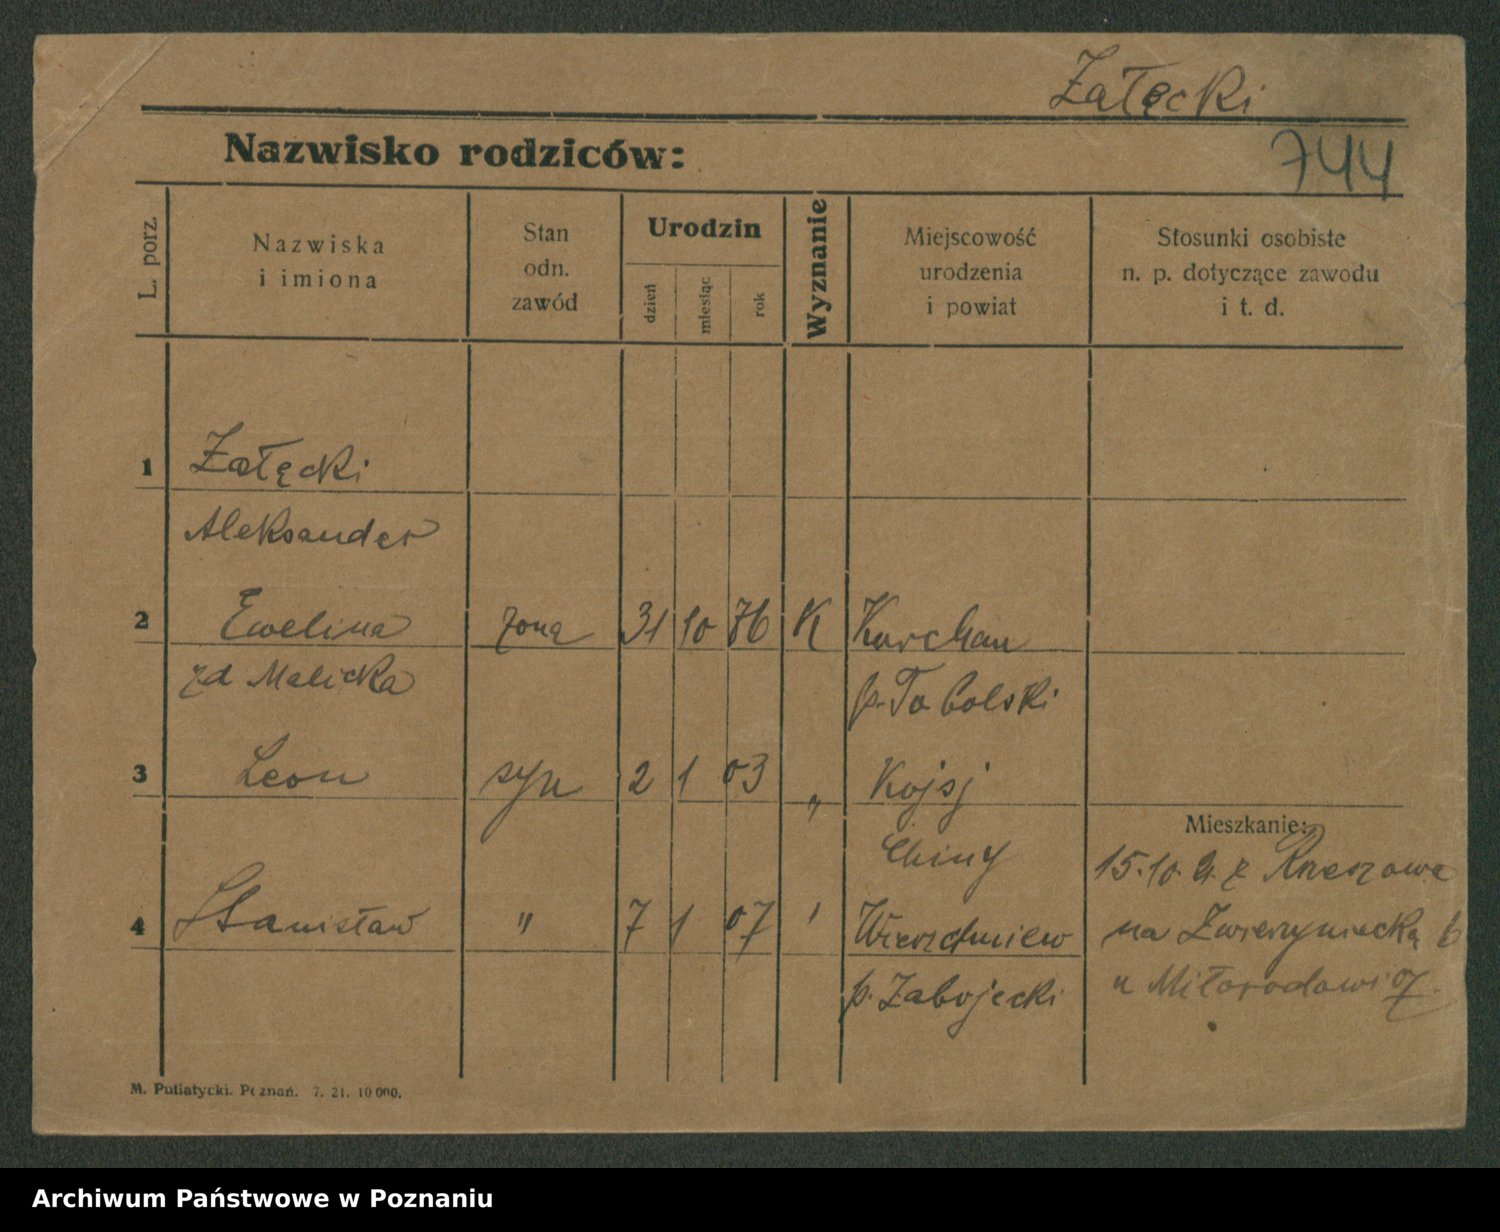 Załęcki
Nazwisko rodziców:
744
L. porz.
Nazwiska
i imiona
Stan
odn.
zawód
Urodzin
dzień
miesiąc
rok
Wyznanie
Miejscowość
urodzenia
i powiat
Stosunki osobiste
n. p. dotyczące zawodu
i t. d.
1 Załęcki
Aleksander
2 Ewelina żona 31 10 76 K Kurchan
zd Malicka p. Tobolski
3 Leon syn 2 1 03 „
Chiny
Mieszkanie:
15.10.21. z Rzeszowa
4 Stanisław " 7 1 07 '
na Zwierzyniecką 6
p. Zabojecki
u Miłorodowi
M. Putiatycki. Poznań. 7. 21. 10 000.
Archiwum Państwowe w Poznaniu